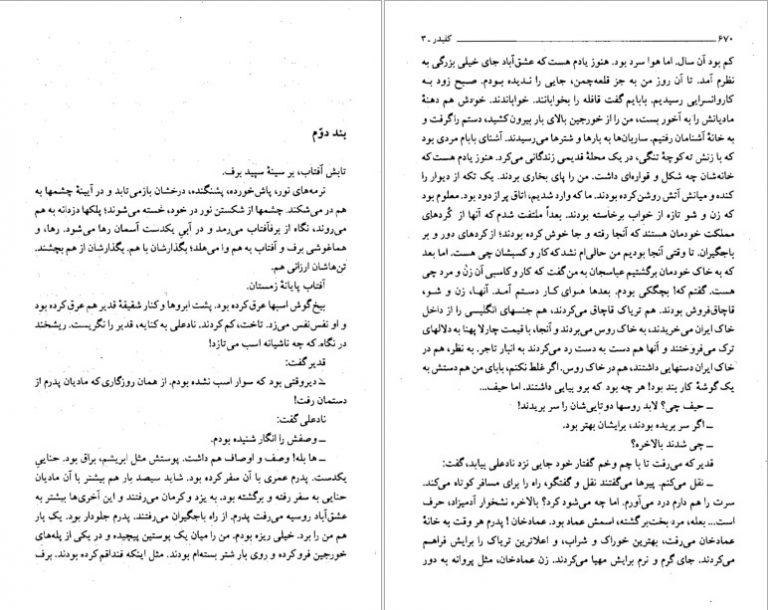 بند دوّم
تابش آفتاب، بر سینهٔ سپید برف.
نرمه‌های نور، پاش‌خورده، پشنگنده، درخشان بازمی‌تابد و در آیینهٔ چشمها به
هم در می‌شکند. چشمها از شکستن نور در خود، خسته می‌شوند؛ پلکها دزدانه به هم
می‌روند، نگاه از برفآفتاب می‌رمد و در آبیِ یکدست آسمان رها می‌شود. رها، و
هماغوشی برف و آفتاب به هم وا می‌هلد؛ بگذارشان با هم. بگذارشان از هم بچشند.
تن‌هاشان ارزانی هم.
آفتاب پایانهٔ زمستان.
بیخ‌گوش اسبها عرق کرده بود. پشت ابروها و کنار شقیقهٔ قدیر هم عرق کرده بود
و او نفس‌نفس می‌زد. تاخت، کم کردند. نادعلی به کنایه، قدیر را نگریست. ریشخند
در نگاه، که چه ناشیانه اسب می‌تازد!
قدیر گفت:
ــ دیر وقتی بود که سوار اسب نشده بودم. از همان روزگاری که مادیان پدرم از
دستمان رفت!
نادعلی گفت:
ــ وصفش را انگار شنیده بودم.
ــ ها بله! وصف و اوصاف هم داشت. پوستش مثل ابریشم، براق بود. حناییِ
یکدست. پدرم عمری با آن سفر کرده بود. شاید سیصد بار هم بیشتر با آن مادیان
حنایی به سفر رفته و برگشته بود. به یزد و کرمان می‌رفتند و این آخری‌ها بیشتر به
عشق‌آباد روسیه می‌رفت پدرم. از راه باجگیران می‌رفتند. پدرم جلودار بود. یک بار
هم من را برد. خیلی ریزه بودم. من را میان یک پوستین پیچیده و در یکی از پله‌های
خورجین فرو کرده و روی بار شتر بسته‌ام بودند. مثل اینکه قنداقم کرده بودند. برف
۶۷۰ کلیدر ـ ۳
کم بود آن سال. اما هوا سرد بود. هنوز یادم هست که عشق‌آباد جای خیلی بزرگی به
نظرم آمد. تا آن روز من به جز قلعه‌چمن، جایی را ندیده بودم. صبح زود به
کاروانسرایی رسیدیم. بابایم گفت قافله را بخوابانند. خواباندند. خودش هم دهنهٔ
مادیانش را به آخور بست، من را از خورجین بالای بار بیرون کشید، دستم را گرفت و
به خانهٔ آشنامان رفتیم. ساربان‌ها به بارها و شترها می‌رسیدند. آشنای بابام مردی بود
که با زنش ته کوچهٔ تنگی، در یک محلهٔ قدیمی زندگانی می‌کرد. هنوز یادم هست که
خانه‌شان چه شکل و قواره‌ای داشت. من را پای بخاری بردند. یک تکه از دیوار را
کنده و میانش آتش روشن کرده بودند. ما که وارد شدیم، اتاق پر از دود بود. معلوم بود
که زن و شو تازه از خواب برخاسته بودند. بعداً ملتفت شدم که آنها از کُردهای
مملکت خودمان هستند که آنجا رفته و جا خوش کرده بودند؛ از کردهای دور و بر
باجگیران. تا وقتی آنجا بودیم من حالی‌ام نشد که کار و کسبشان چی هست. اما بعد
که به خاک خودمان برگشتیم عباسجان به من گفت که کار و کاسبی آن زن و مرد چی
هست. گفتم که! بچگکی بودم. بعدها هوای کار دستم آمد. آنها، زن و شو،
قاچاق‌فروش بودند. هم تریاک قاچاق می‌کردند، هم جنسهای انگلیسی را از داخل
خاک ایران می‌خریدند، به خاک روس می‌بردند و آنجا، با قیمت چارلا پهنا به دلالهای
ترک می‌فروختند و آنها هم دست به دست رد می‌کردند به انبار تاجر. به نظر، هم در
خاک ایران دستهایی داشتند، هم در خاک روس. اگر غلط نکنم، بابای من هم دستش به
یک گوشهٔ کار بند بود! هر چه بود که برو بیایی داشتند. اما حیف...
ــ حیف چی؟ لابد روسها دوتایی‌شان را سر بریدند!
ــ اگر سر بریده بودند، برایشان بهتر بود.
ــ چی شدند بالاخره؟
قدیر که می‌رفت تا با چم و خم گفتار خود جایی نزد نادعلی بیابد، گفت:
ــ نقل می‌کنم. پیرها می‌گفتند نقل و گفتگو، راه را برای مسافر کوتاه می‌کند.
سرت را هم دارم درد می‌آورم. اما چه می‌شود کرد؟ بالاخره نشخوار آدمیزاد، حرف
است... بعله، مرد بخت‌برگشته، اسمش عماد بود. عمادخان! پدرم هر وقت به خانهٔ
عمادخان می‌رفت، بهترین خوراک و شراب، و اعلاترین تریاک را برایش فراهم
می‌کردند. جای گرم و نرم برایش مهیا می‌کردند. زن عمادخان، مثل پروانه به دور